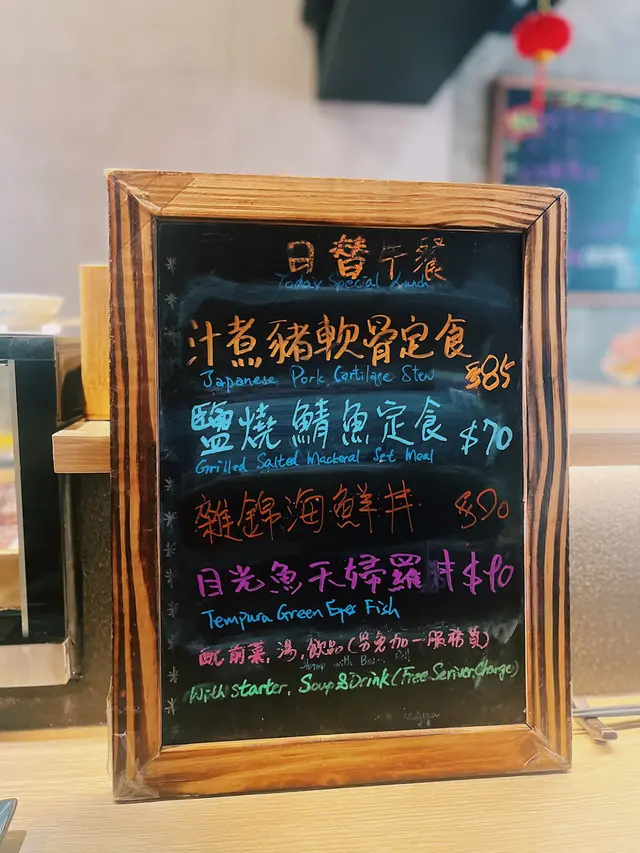 日替午餐
Today Special Lunch
汁煮豬軟骨定食
Japanese Pork Cartilage Stew
$85
鹽燒鯖魚定食 $70
Grilled Salted Mackeral Set Meal
雜錦海鮮丼
目光魚天婦羅丼 $90
Tempura Green Eyes Fish
配前菜, 湯, 飲品 (另免加一服務費)
With starter, Soup & Drink (Free Seriver Charge)